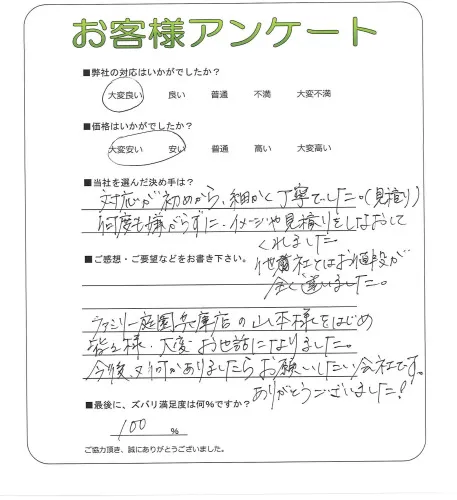 お客様アンケート
■弊社の対応はいかがでしたか?
大変良い 良い 普通 不満 大変不満
■価格はいかがでしたか?
大変安い 安い 普通 高い 大変高い
■当社を選んだ決め手は?
対応が初めから、細かく丁寧でした。(見積り)
何度も嫌がらずに、イメージや見積りをしなおして
くれました
■ご感想・ご要望などをお書き下さい。
他社とはお値段が
全く違いました。
ファミリー庭園兵庫店の山本様をはじめ
皆々様、大変お世話になりました。
今後、又何かありましたらお願いしたい会社です。
ありがとうございました!
■最後に、ズバリ満足度は何%ですか?
100 %
ご協力頂き、誠にありがとうございました。